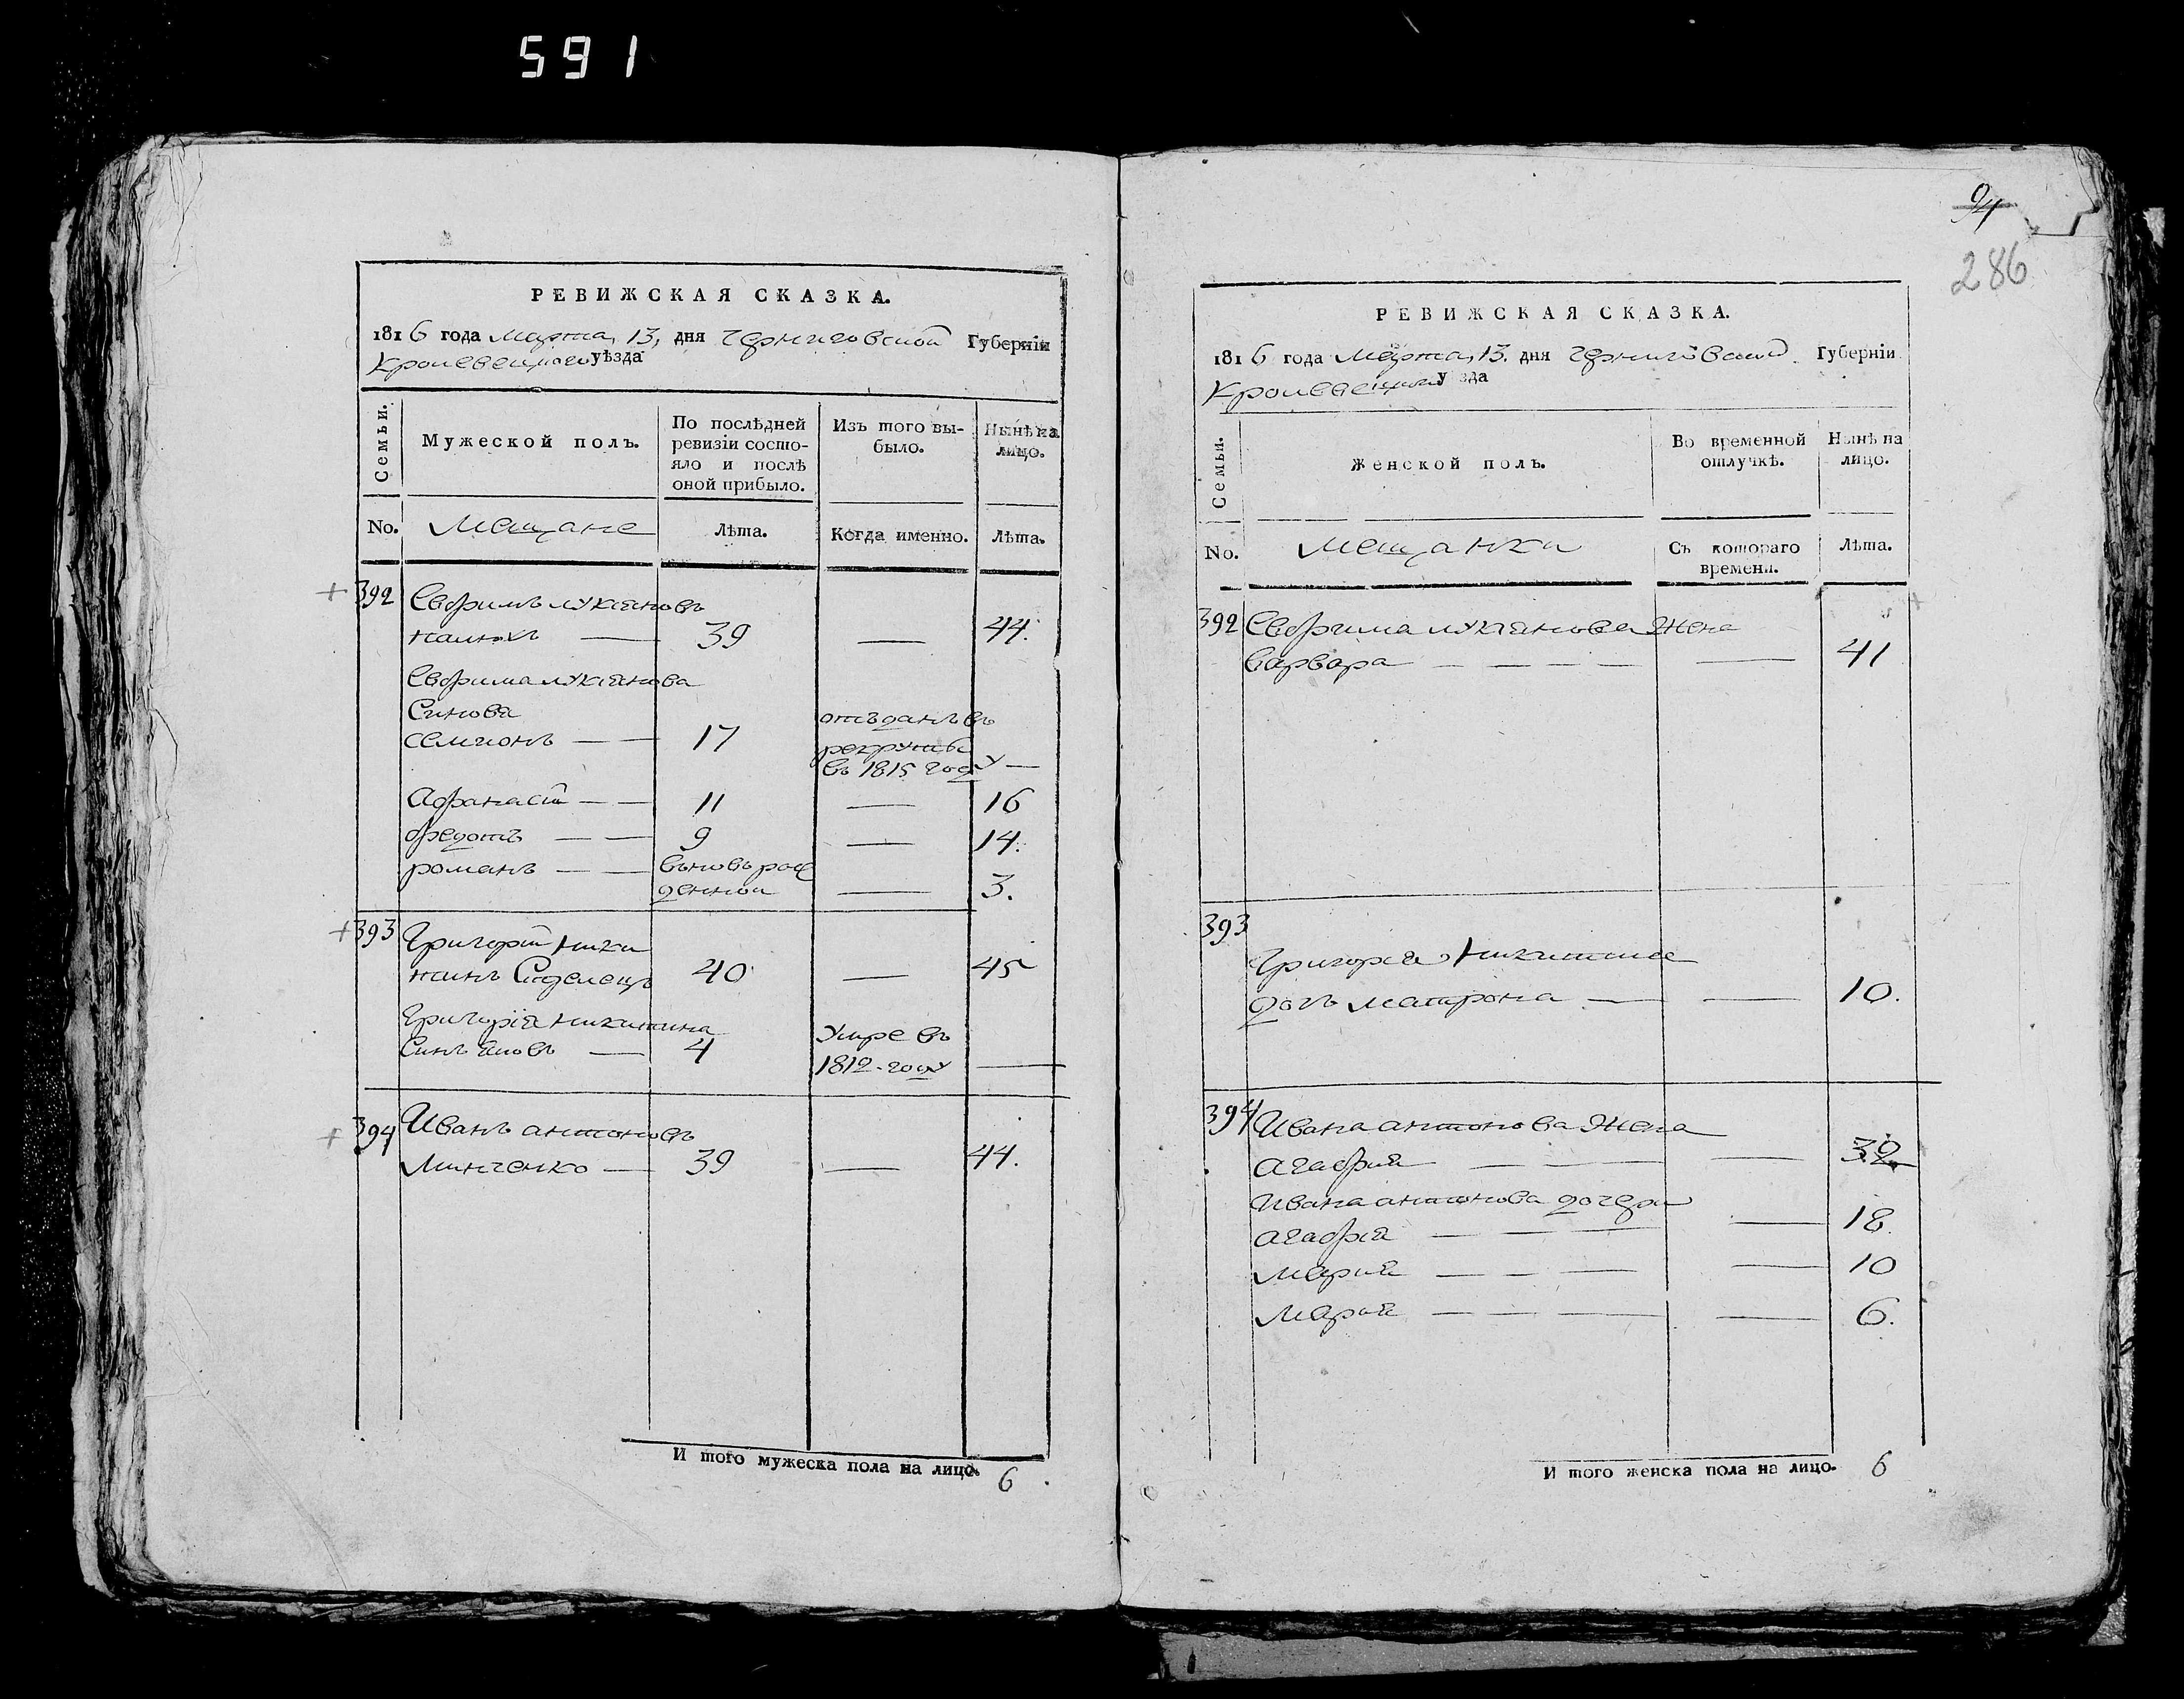 591
РЕВИЖСКАЯ СКАЗКА.
1816 года Марта, 13, дня Черниговской Губерніи
Кролевецкого уѣзда
Семьи.
Мужеской полъ.
По послѣдней ревизіи состо-
яло и послѣ
оной прибыло.
Изъ того вы-
было.
Нынѣ на
лицо.
No. Мещане Лѣта. Когда именно. Лѣта.
392 Евфимъ лукяновъ
39 — 44.
Евфима лукянова
Синовя
семионъ — 17 отъданъ въ
рекруты
въ 1815 году —
Афанасій — — 11 — 16
федотъ — — 9 — 14.
романъ — — въновь рож
денной — 3.
393 Григорій ники
тинъ 40 — 45
Григорія никитина
Синъ яковъ — 4 Умре въ
1812 году —
394 Иванъ антоновъ
Минченко — 39 — 44.
И того мужеска пола на лицо. 6
94
286
РЕВИЖСКАЯ СКАЗКА.
1816 года Марта, 13. дня Черниговской Губерніи
Кролевецкого уѣзда
Семьи.
Женской полъ.
Во временной
отлучкѣ.
Нынѣ на
лицо.
No. Мещанки Съ котораго
времени. Лѣта.
392 Евфима лукянова Жена
варвара — — — — — 41
393
Григорія Никитина
дочь матрона — — 10.
394 Ивана антонова Жена
агафия — — — 32
Ивана антонова дочери
агафія — — — — 18.
мария — — — — 10
Мария — — — — 6.
И того женска пола на лицо. 6